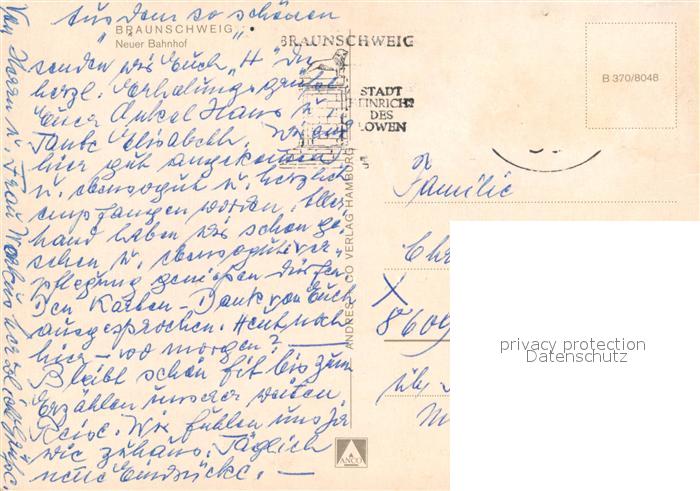 Aus dem so schönen
BRAUNSCHWEIG
Neuer Bahnhof
senden wir Euch
herzl. Erholungsgrüße
Eure Onkel Hans u.
Tante Elisabeth. Wir sind
hier gut angekommen
u. ebensogut u. herzlich
empfangen worden. Aller
hand haben wir schon ge-
sehen u. ebensogute Ver-
pflegung genießen dürfen.
Den Karten-Dank von Euch
ausgesprochen. Heut noch
hier – wo morgen? —
Bleibt schön fit bis zum
Erzählen unserer weiten
Reise. Wir fühlen uns ja
wie zuhaus. Täglich
neue Eindrücke. —
Von Herrn u. Frau
BRAUNSCHWEIG
STADT
HEINRICHS
DES
LÖWEN
B 370/8048
ANDRES + CO VERLAG HAMBURG
ANCO
Familie
8609
privacy protection
Datenschutz